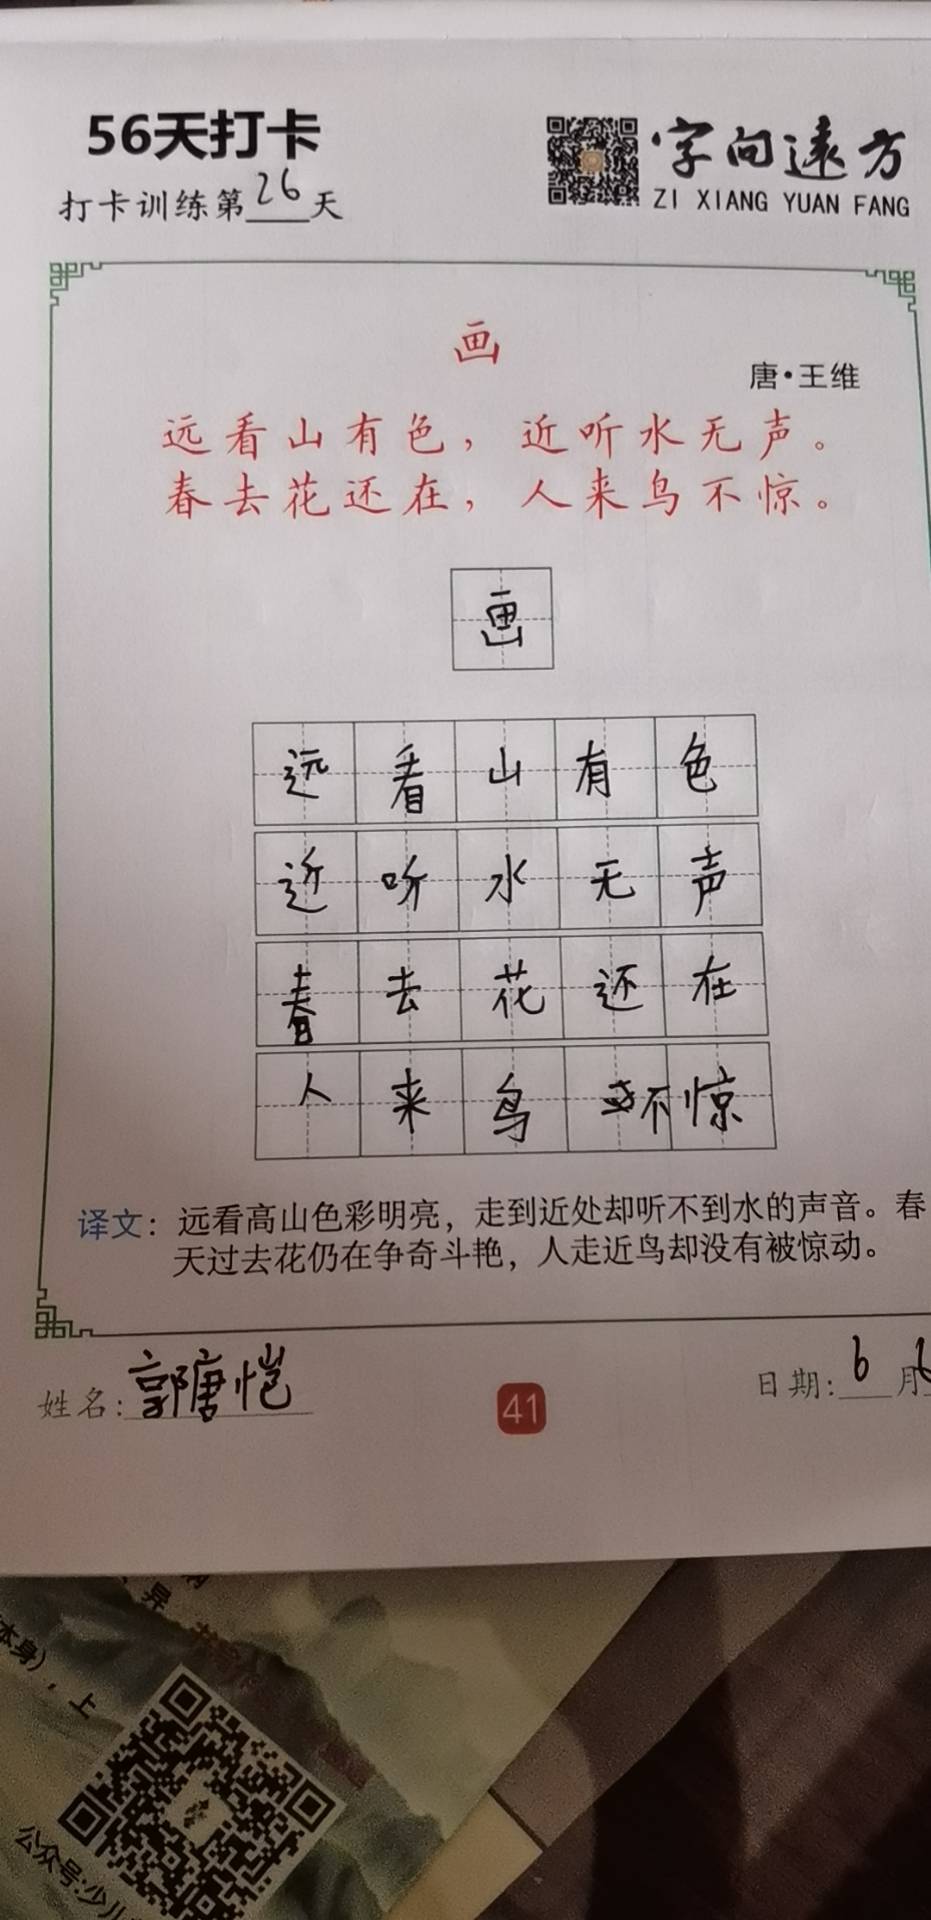 56天打卡
打卡训练第26天
字向遠方
ZI XIANG YUAN FANG
画
唐·王维
远看山有色，近听水无声。
春去花还在，人来鸟不惊。
画
远看山有色
近听水无声
春去花还在
人来鸟不惊
译文：远看高山色彩明亮，走到近处却听不到水的声音。春
天过去花仍在争奇斗艳，人走近鸟却没有被惊动。
姓名：郭唐恺
41
日期：6月6
本身），上
公众号:少儿